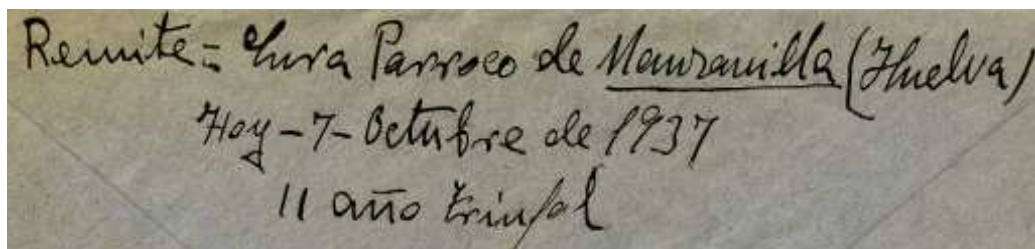 Remite = Cura Parroco de Manzanilla (Huelva)
Hoy - 7 - Octubre de 1937
II año triunfal